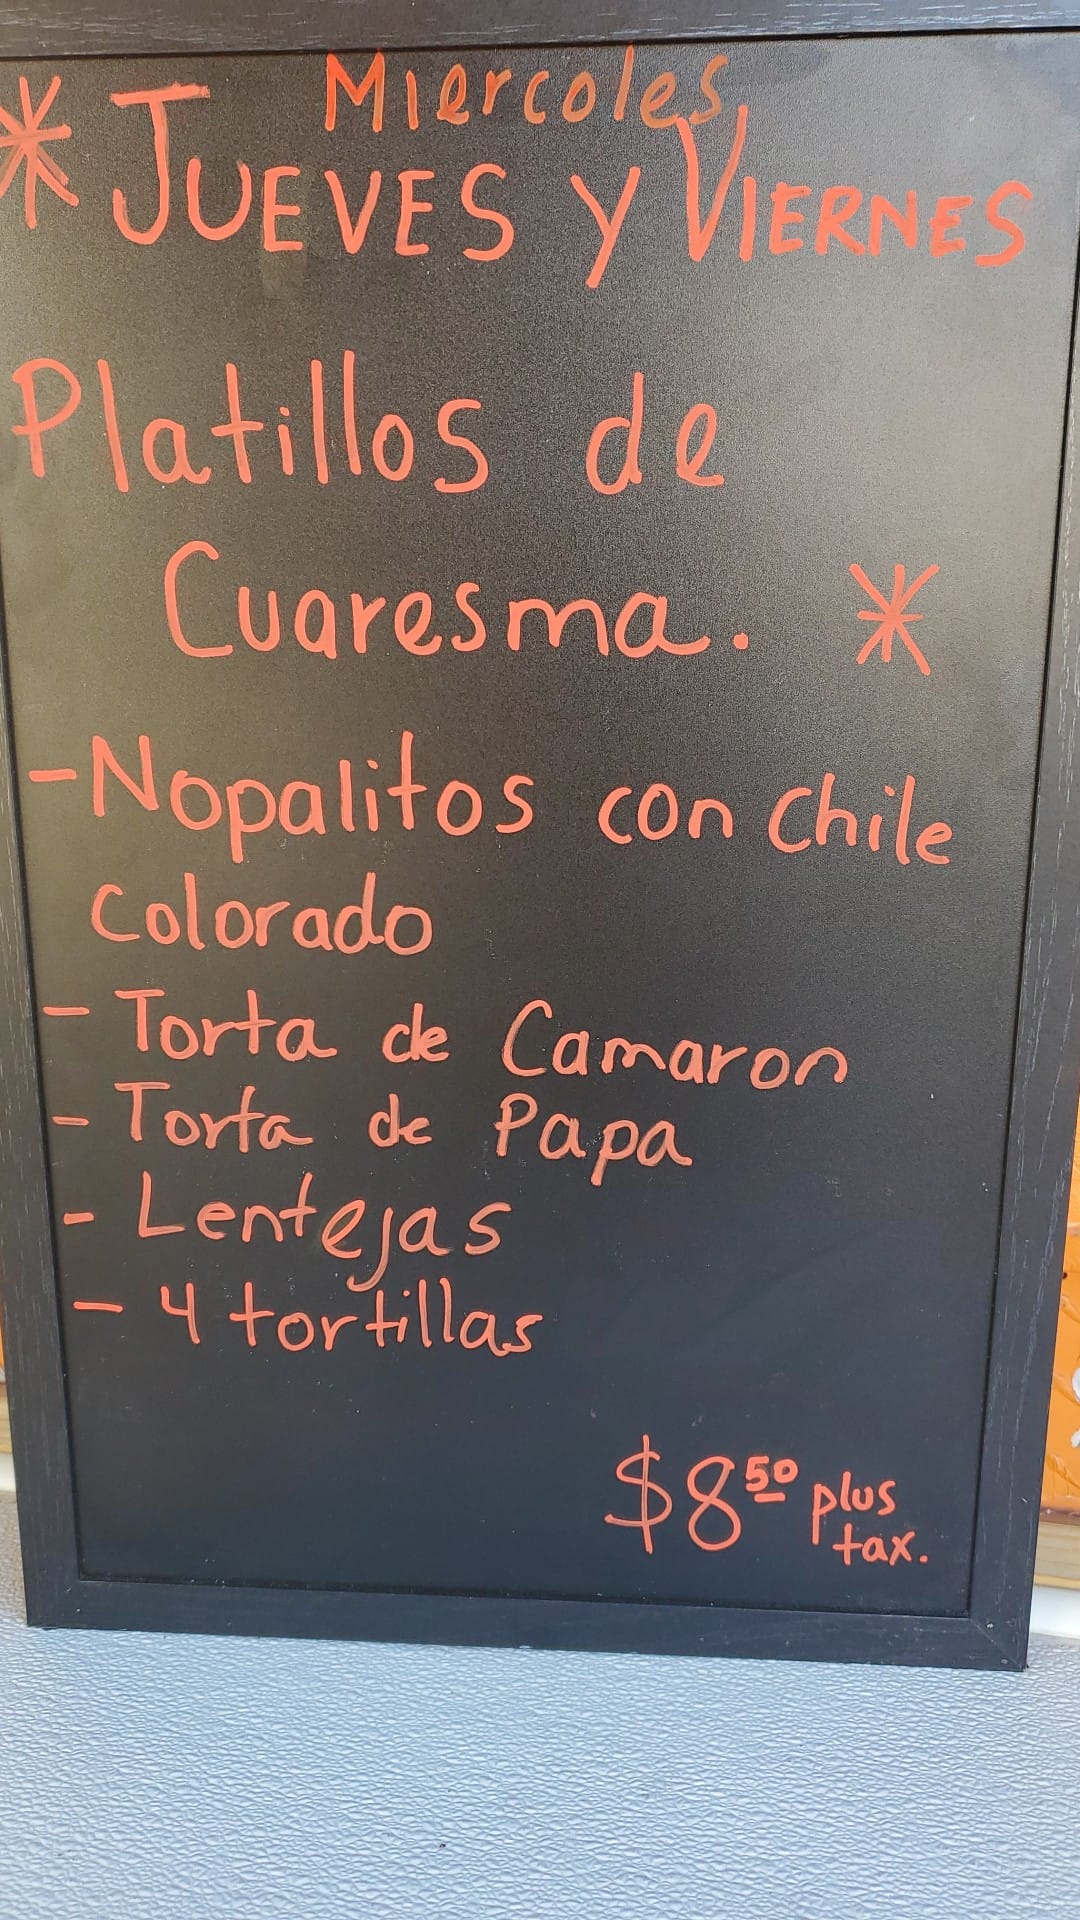 Miercoles,
* JUEVES y VIERNES
Platillos de
Cuaresma. *
- Nopalitos con chile
colorado
- Torta de Camaron
- Torta de Papa
- Lentejas
- 4 tortillas
$8 50 plus
tax.